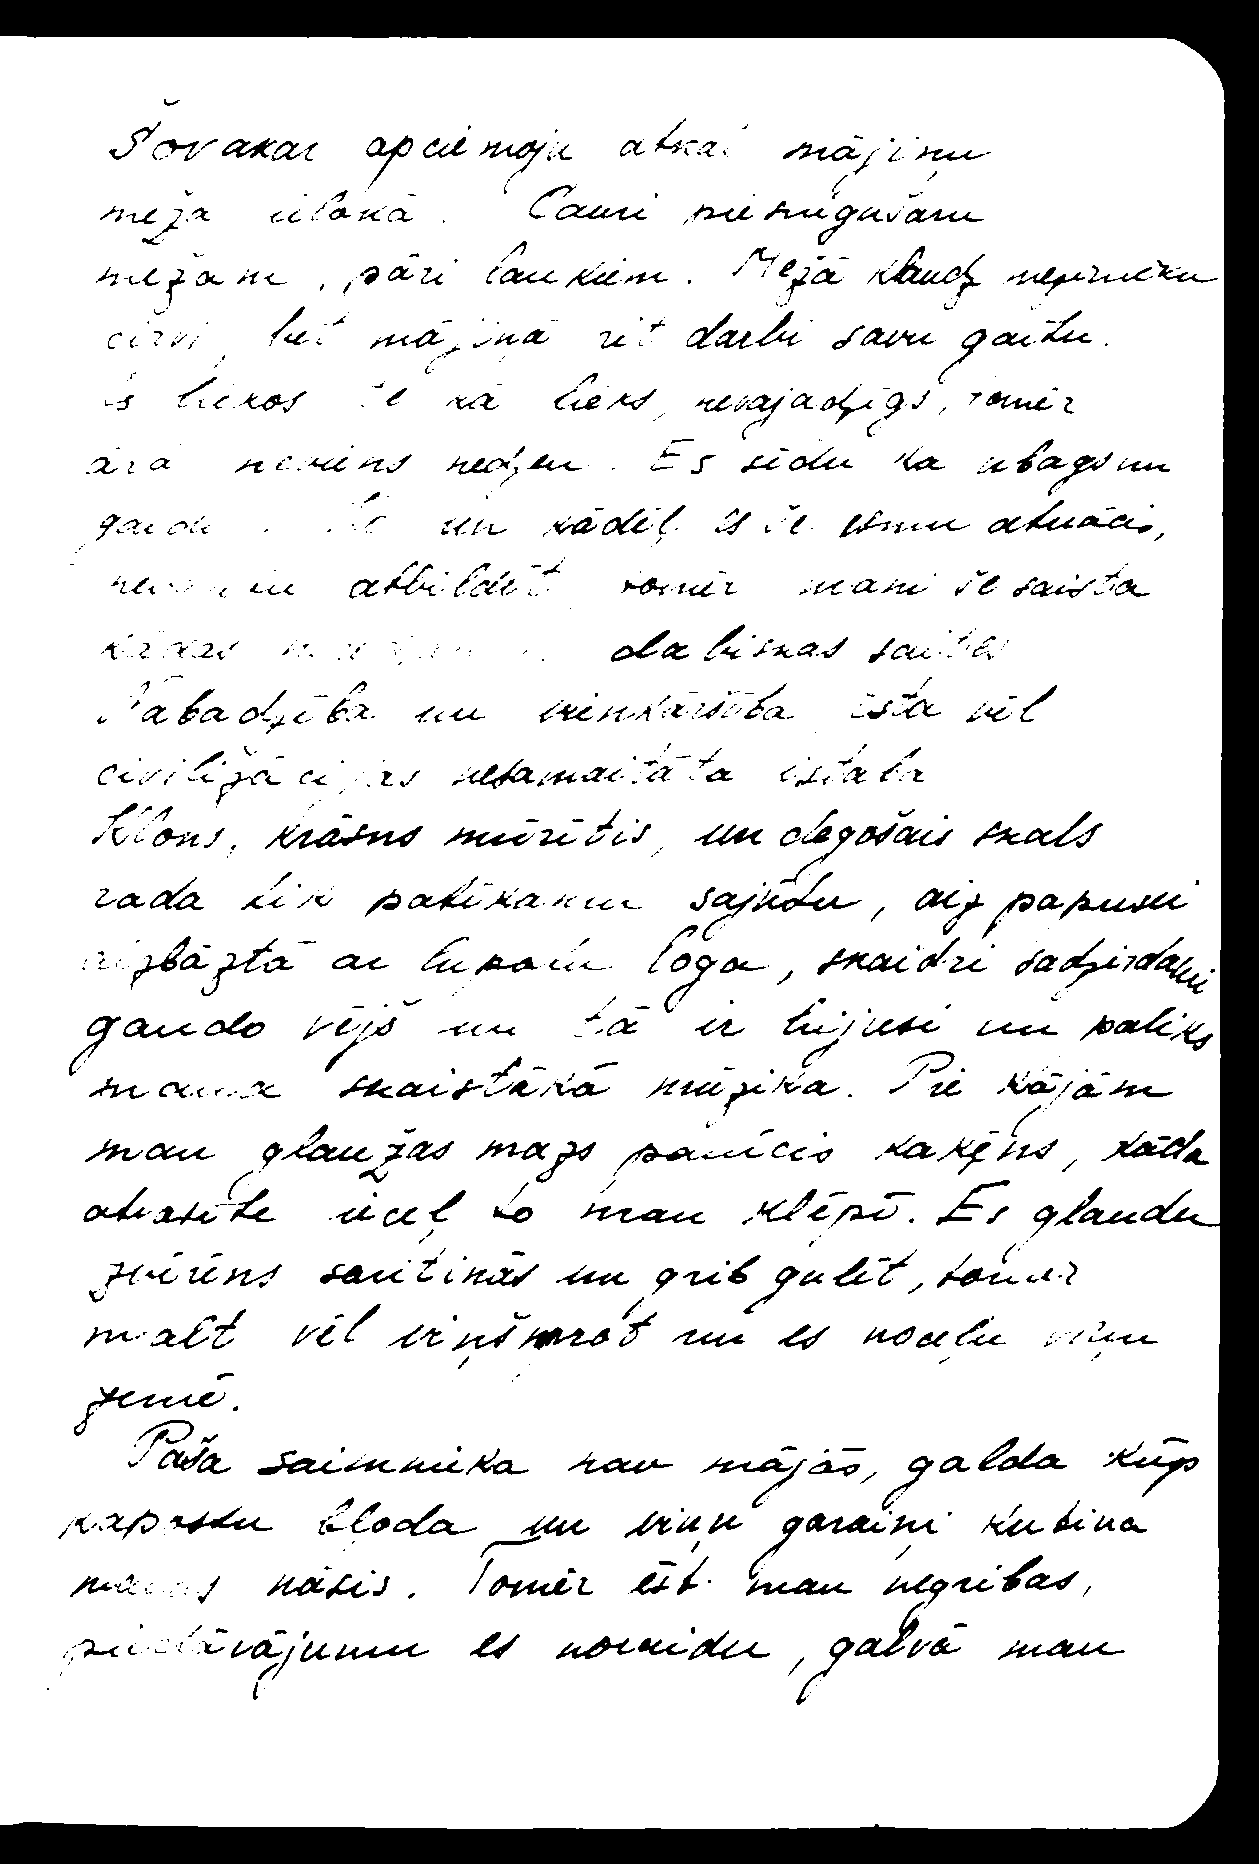 Šovakar apciemoju atkal mājiņu
meža ielokā. Cauri piesnigušam
mežam, pāri laukiem. Mežā klaudz mežinieku
cirvi, bet mājiņā rit darbi savu gaitu.
Es liekos še kā lieks, nevajadzīgs, tomēr
ārā neviens nedzen. Es sēdu kā ubags un
gaidu. un kādēļ es še esmu atnācis,
nevaru atbildēt, tomēr mani še saista
kādas dabiskas saites
Nabadzība un vienkāršība īsta vēl
civilizācijas nesamaitāta istaba
Klons, krāsns mūrītis, un degošais skals
rada tik patīkamu sajūtu, aiz papussei
aizbāztā ar lupatu loga, skaidri sadzirdami
gaudo vējš un tā ir bijusi un paliks
mana skaistākā mūzika. Pie kājām
man glaužas mazs pavicis kaķēns, kāda
atrasite uceļ to man klēpī. Es glaudu
zvērēns saritinās un grib gulēt, tomēr
malt vēl viņš prot un es noceļu viņu
zemē.
Paša saimnieka nav mājās, galda kūp
kapostu bļoda un viņu garaiņi kutina
manas nāsis. Tomēr ēst man negribas,
piedāvājumu es noraidu, galvā man